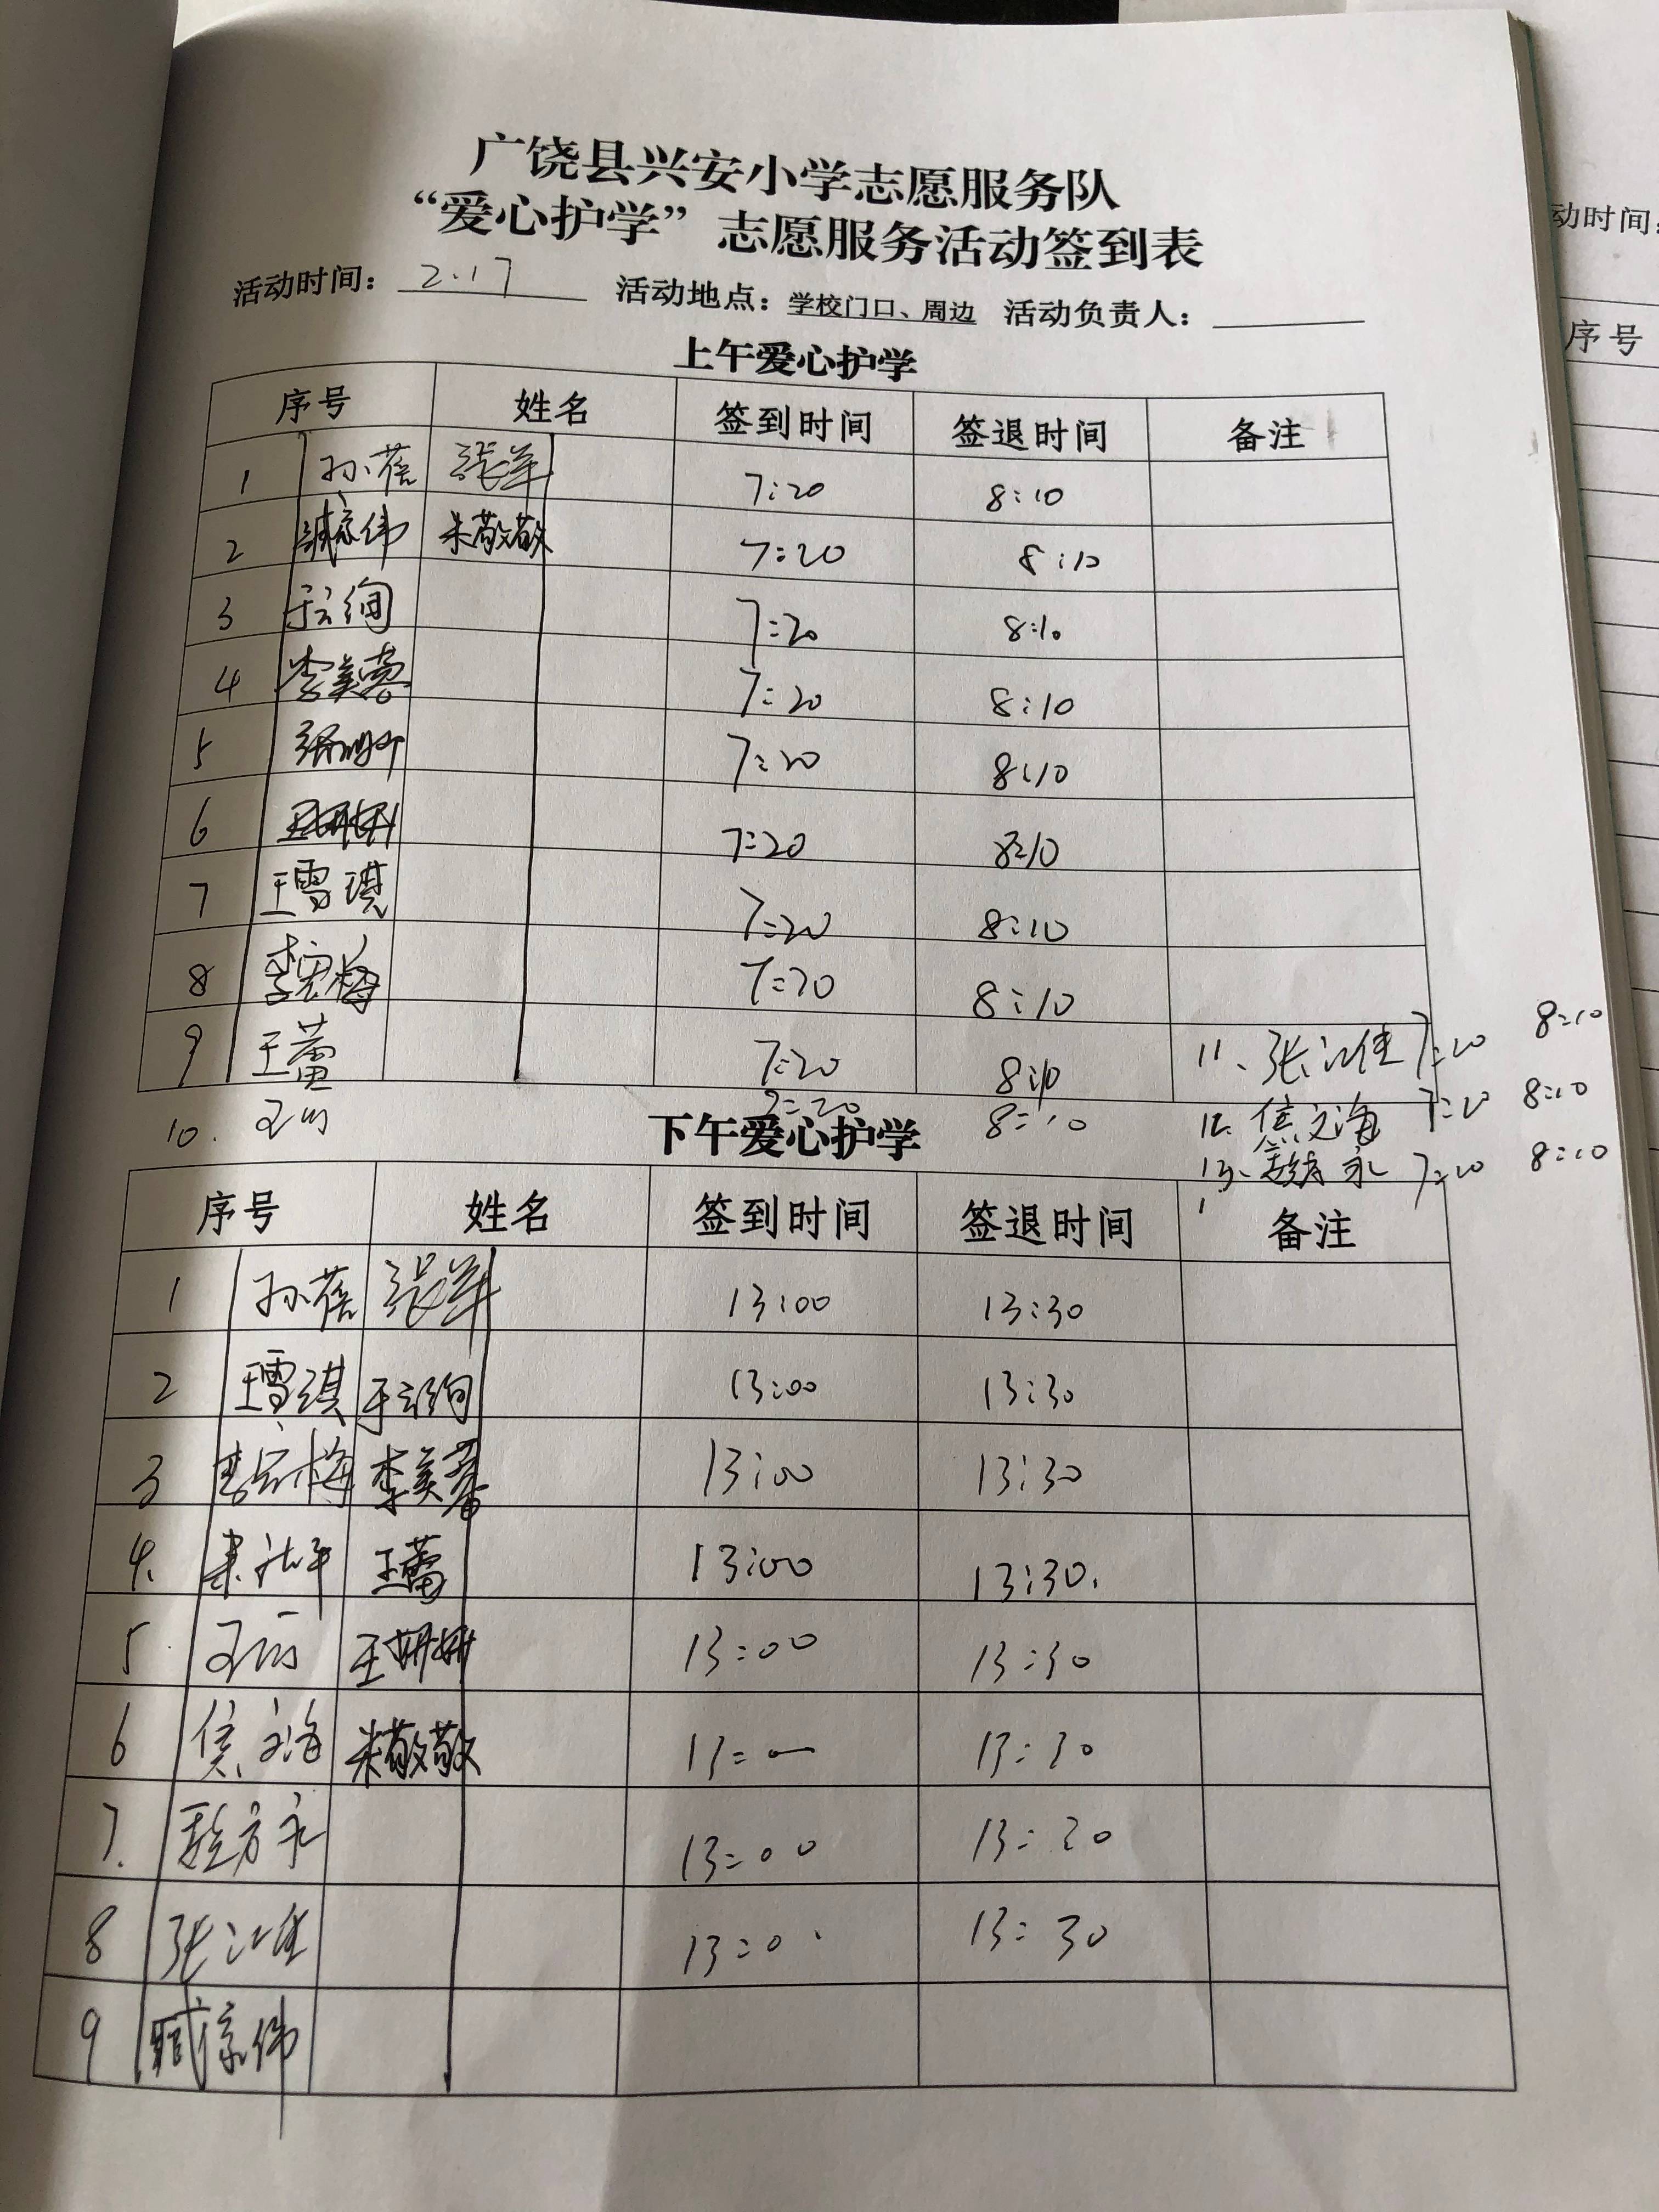 广饶县兴安小学志愿服务队
“爱心护学”志愿服务活动签到表
活动时间：2.17 活动地点：学校门口、周边 活动负责人：
上午爱心护学
序号 姓名 签到时间 签退时间 备注
1 孙蓓 张军 7:20 8:10
2 臧京伟 朱敬敬 7:20 8:10
3 于云绚 7:20 8:10
4 李美蓉 7:20 8:10
5 7:20 8:10
6 7:20 8:10
7 王雪琪 7:20 8:10
8 李宏梅 7:20 8:10
9 王蕾 7:20 8:10 11、张江佳 7:20 8:10
10. 王丽 7:20 8:10 12. 侯文海 7:20 8:10
13、 永 7:20 8:10
下午爱心护学
序号 姓名 签到时间 签退时间 备注
1 孙蓓 张军 13:00 13:30
2 王雪琪 于云绚 13:00 13:30
3 李宏梅 李美蓉 13:00 13:30
4. 王蕾 13:00 13:30.
5 王丽 王妍妍 13:00 13:30
6 侯文海 朱敬敬 13:00 13:30
7. 方永 13:00 13:30
8 张江佳 13:0 13:30
9 臧京伟
动时间：
序号